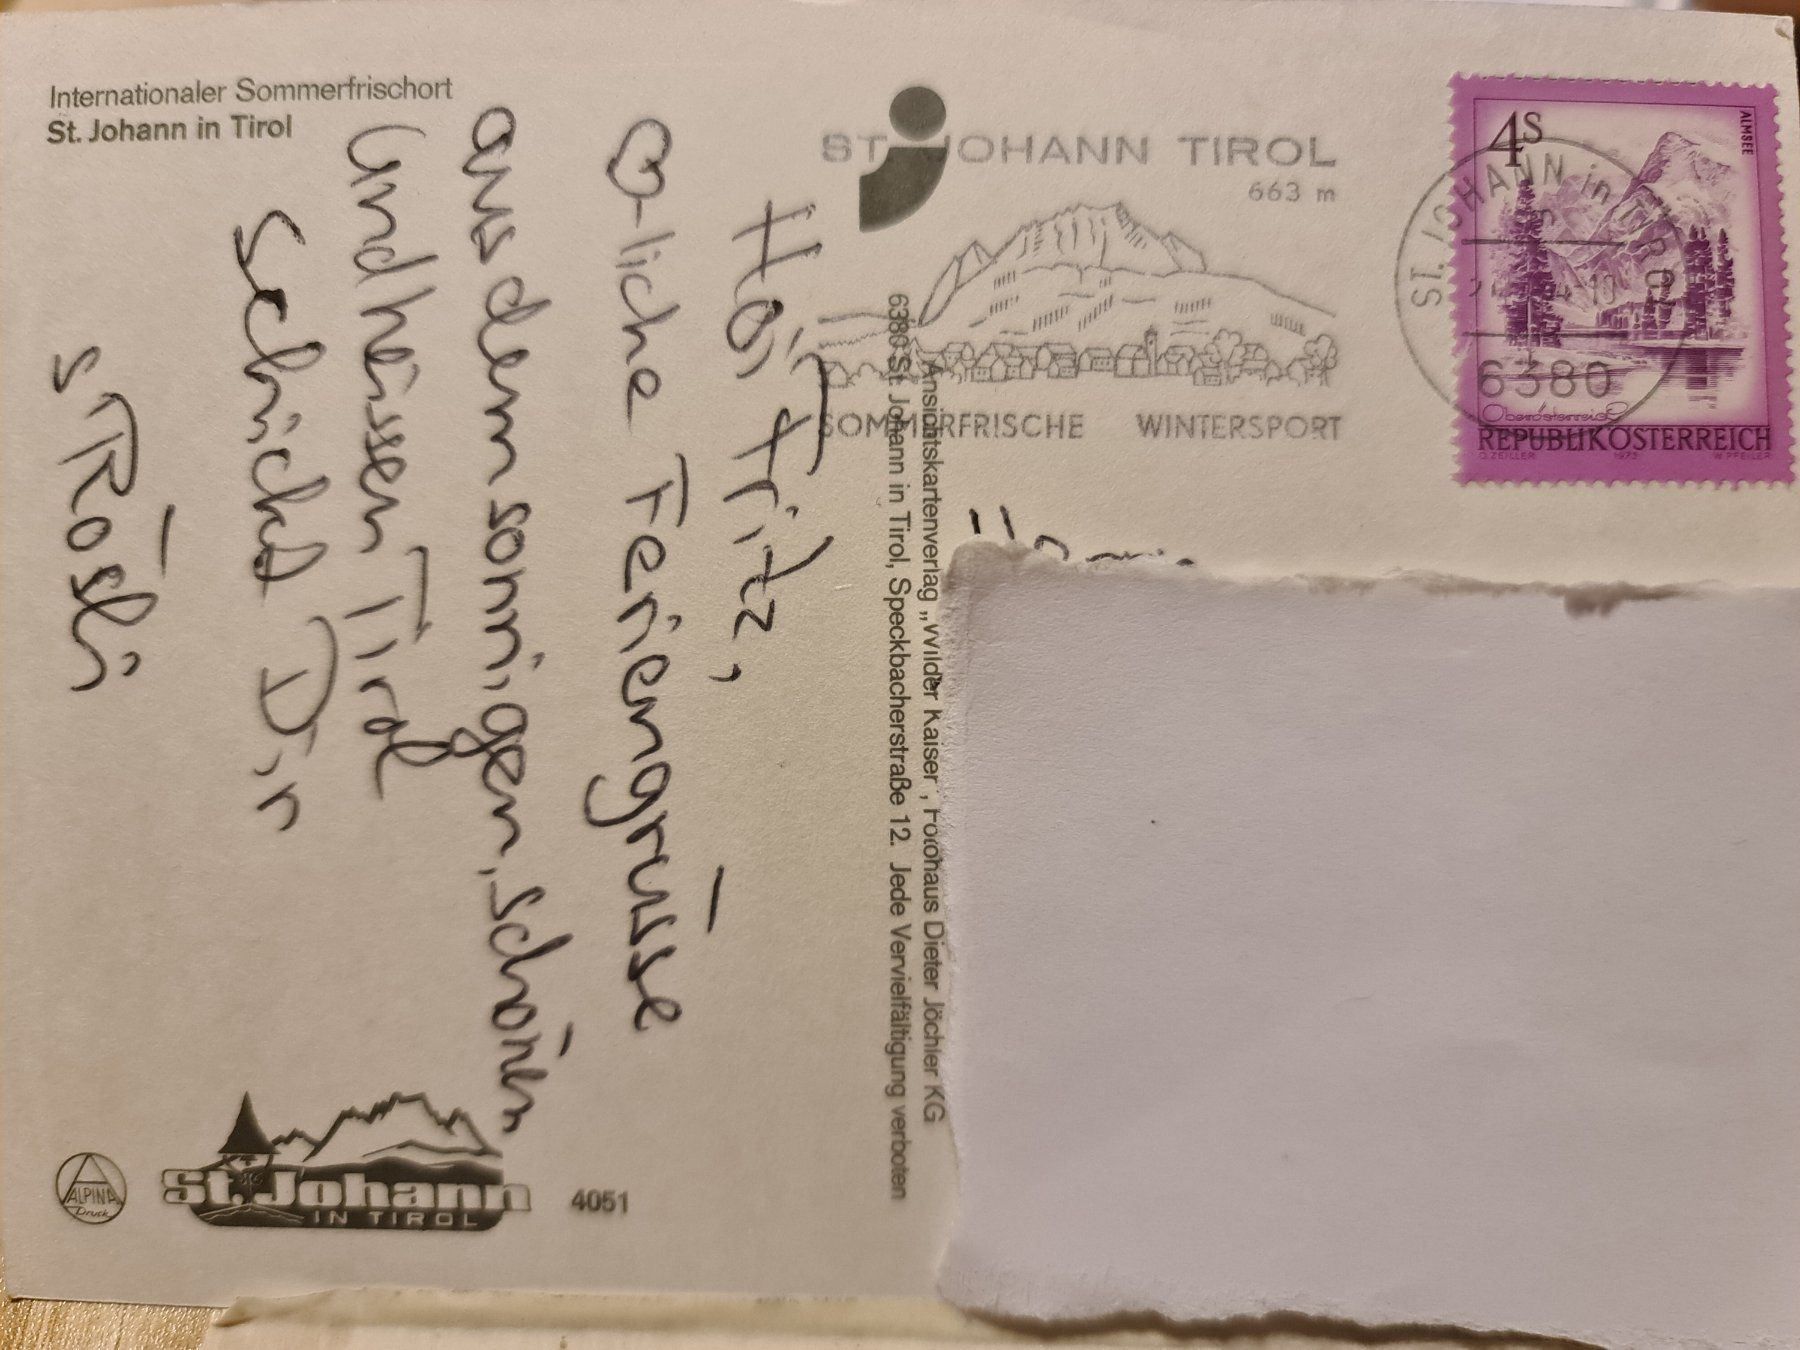 Internationaler Sommerfrischort
St. Johann in Tirol
ST. JOHANN TIROL
663 m
SOMMERFRISCHE WINTERSPORT
ST. JOHANN in TIROL
6380
4S
ALMSEE
Oberösterreich
REPUBLIK ÖSTERREICH
O. ZEILLER 1973 W. PFEILER
Hoi Fritz,
♡-liche Feriengrüsse
aus dem sonnigen, schönen
und heissen Tirol
schickt Dir
s'Rösli
Ansichtskartenverlag „Wilder Kaiser", Fotohaus Dieter Jöchler KG
6380 St. Johann in Tirol, Speckbacherstraße 12. Jede Vervielfältigung verboten
ALPINA
Druck
St. Johann
IN TIROL
4051